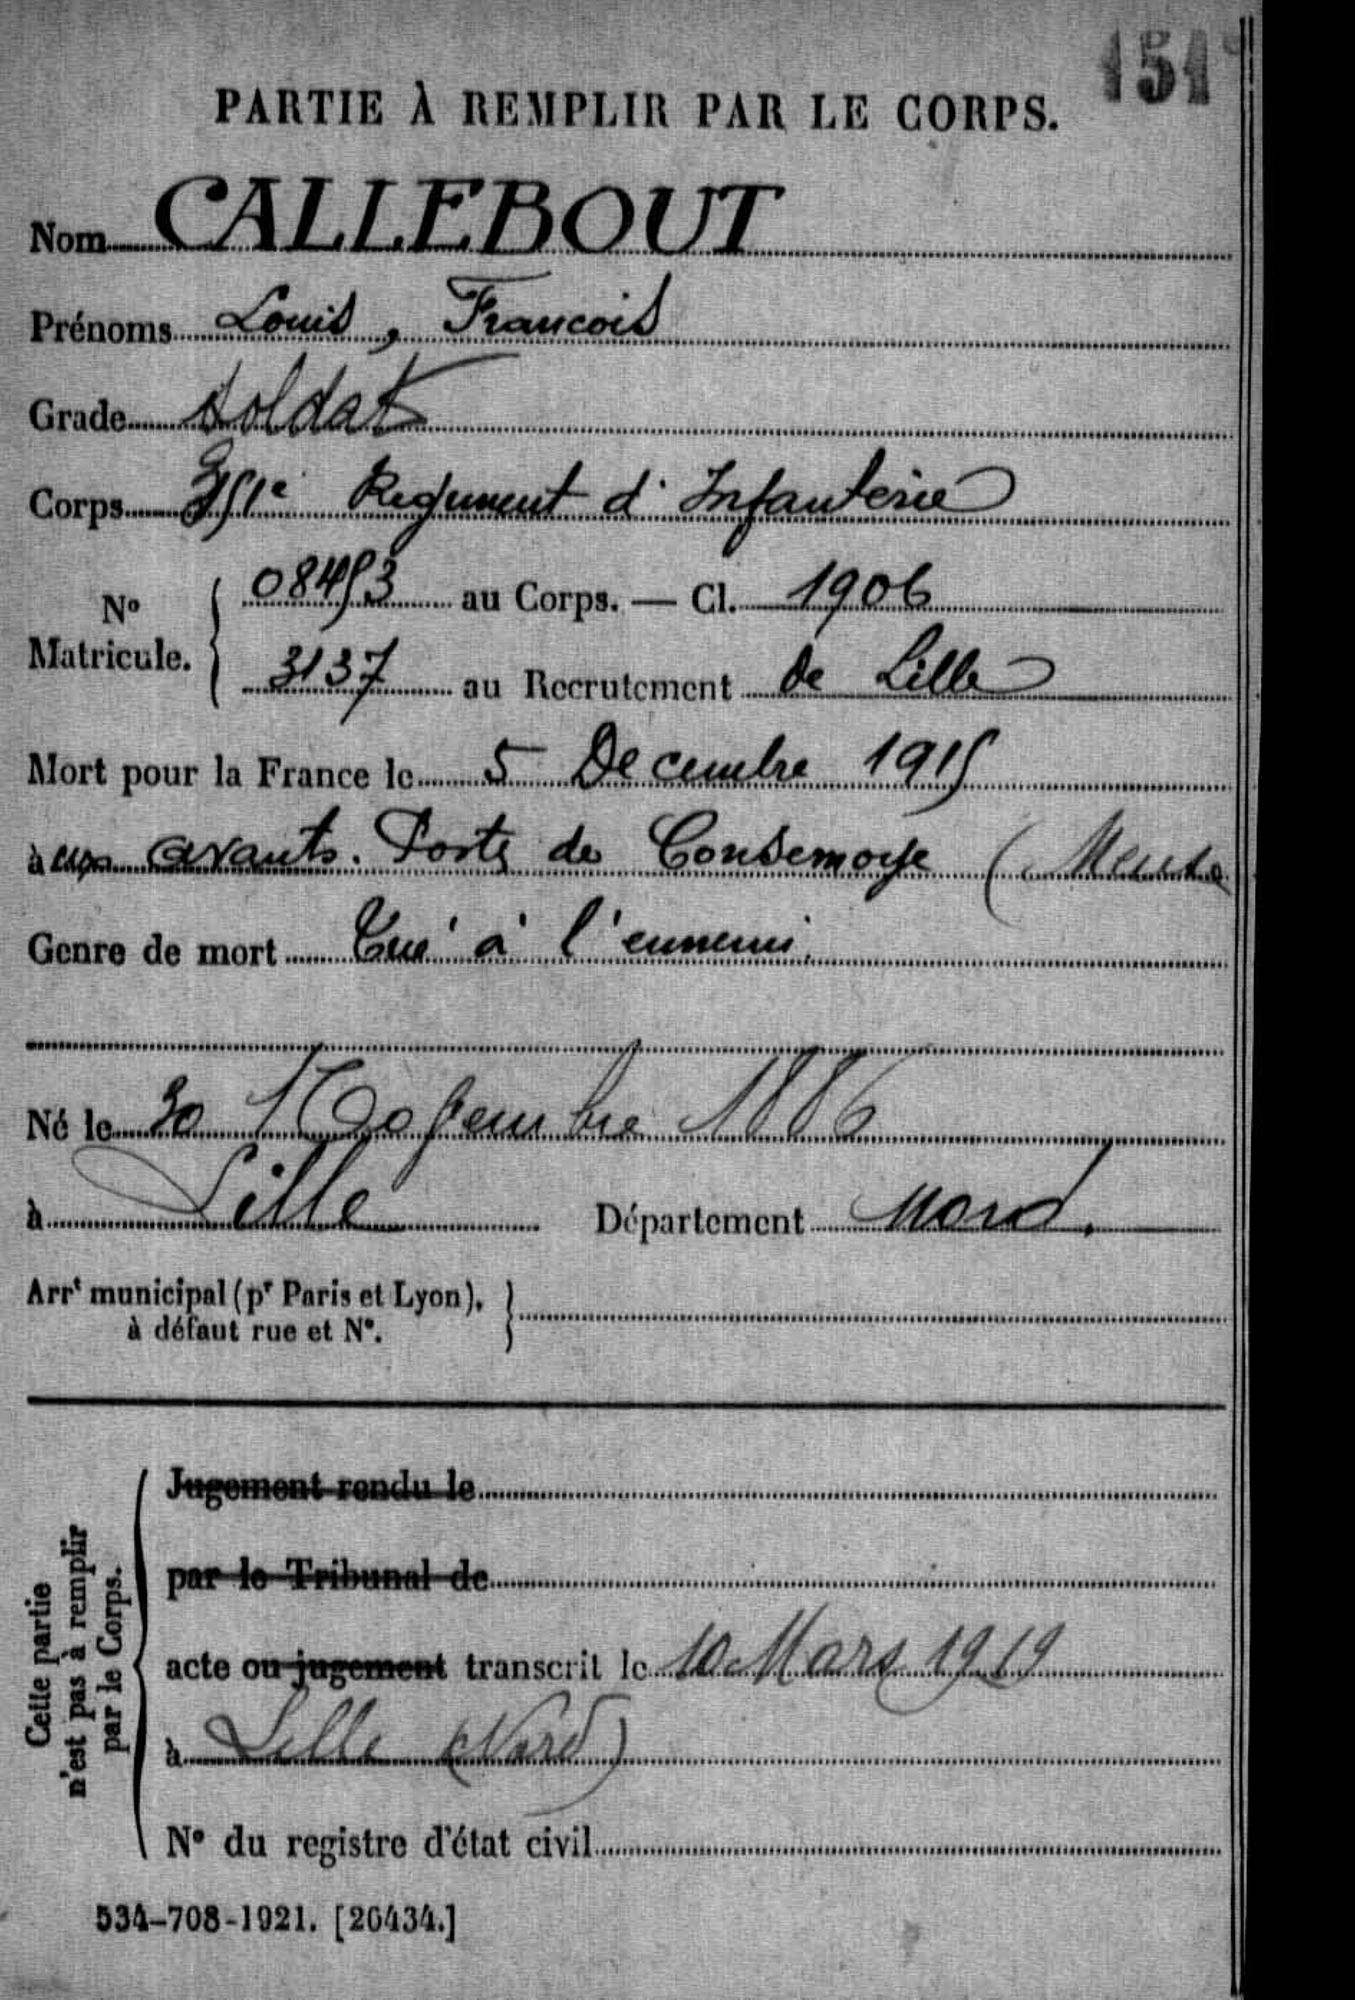 151
PARTIE À REMPLIR PAR LE CORPS.
Nom CALLEBOUT
Prénoms Louis, Francois
Grade Soldat
Corps 351e Regiment d'Infanterie
No Matricule. { 08453 au Corps. — Cl. 1906
3137 au Recrutement de Lille
Mort pour la France le 5 Decembre 1915
à aux avants. Postes de Consemoye (Meuse
Genre de mort Tué à l'ennemi.
Né le 30 Novembre 1886
à Lille Département Nord.
Arrt municipal (pr Paris et Lyon), }
à défaut rue et No.
Cette partie
n'est pas à remplir
par le Corps.
Jugement rendu le
par le Tribunal de
acte ou jugement transcrit le 10 Mars 1919
à Lille (Nord)
No du registre d'état civil
534-708-1921. [26434.]